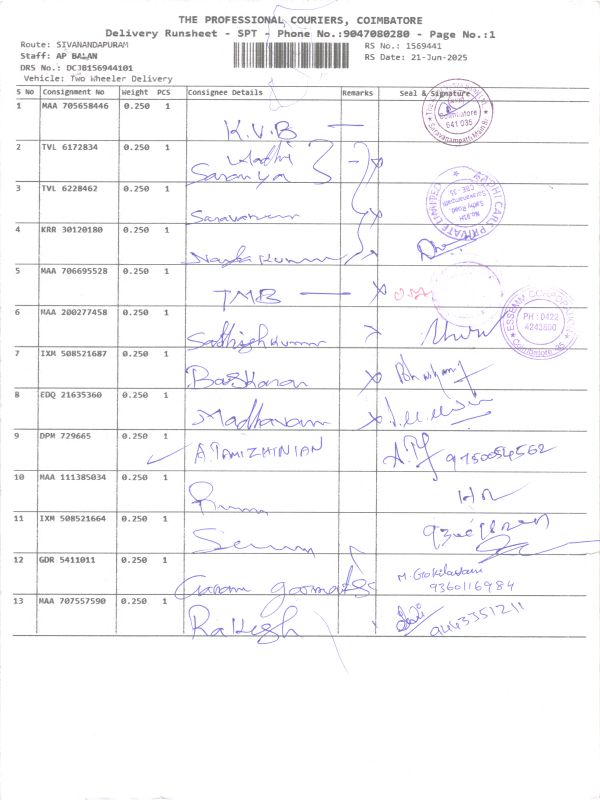 THE PROFESSIONAL COURIERS, COIMBATORE
Delivery Runsheet - SPT - Phone No.:9047080280 - Page No.:1
Route: SIVANANDAPURAM
RS No.: 1569441
Staff: AP BALAN
RS Date: 21-Jun-2025
DRS No.: DCJB156944101
Vehicle: Two Wheeler Delivery
S No Consignment No Weight PCS Consignee Details Remarks Seal & Signature
1 MAA 705658446 0.250 1 K.V.B
Coimbatore
641 035
2 TVL 6172834 0.250 1 Saranya
3 TVL 6228462 0.250 1
PRIVATE LIMITED
4 KRR 30120180 0.250 1
5 MAA 706695528 0.250 1 TMB
6 MAA 200277458 0.250 1 Sathishkumar
ESSEMM CORPORATION
PH : 0422
4243600
Coimbatore
7 IXM 508521687 0.250 1 Baskaran
8 EDQ 21635360 0.250 1 Madhavan
9 DPM 729665 0.250 1 A.TAMIZHINIAN 9750054562
10 MAA 111385034 0.250 1
11 IXM 508521664 0.250 1
12 GDR 5411011 0.250 1 M. Gokilavani
9360116984
13 MAA 707557590 0.250 1 Rakesh 9443351211